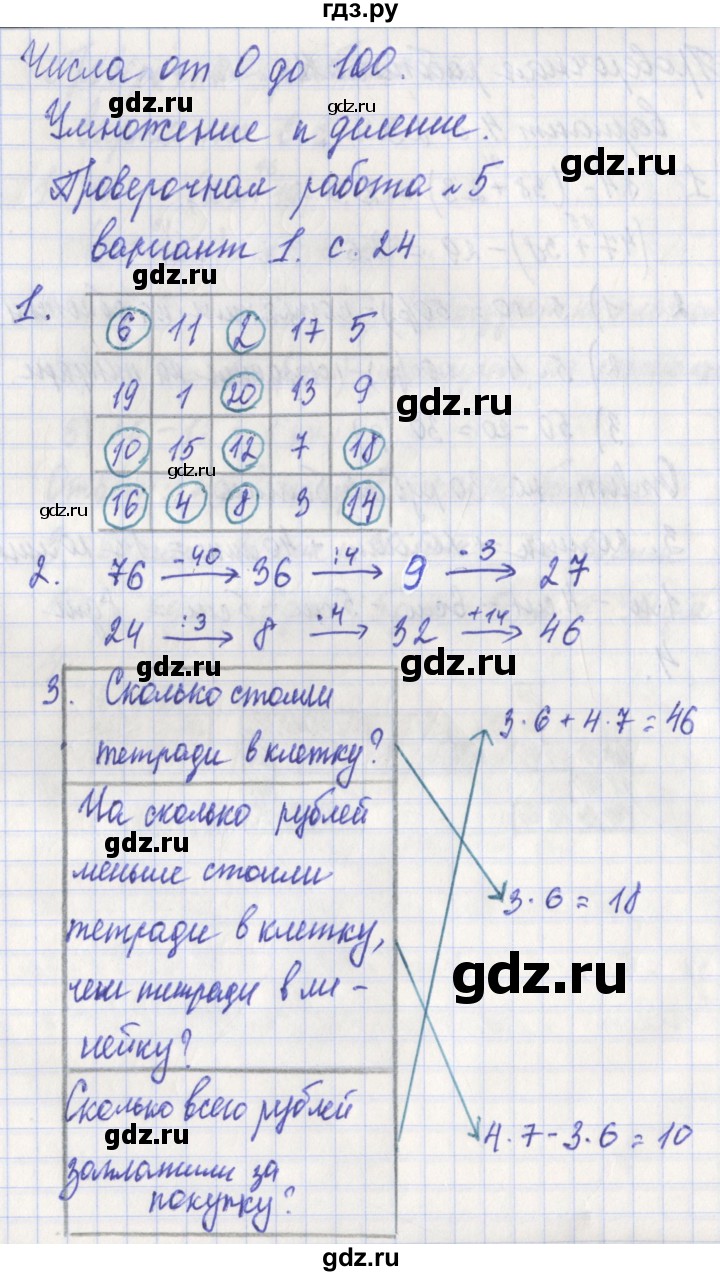 гдз.ру
Числа от 0 до 100.
gdz.ru gdz.ru
Умножение и деление.
gdz.ru
Проверочная работа №5
вариант 1. с. 24
gdz.ru
1. 6 11 2 17 5
19 1 20 13 9
gdz.ru
10 15 12 7 18
gdz.ru
16 4 8 3 14
gdz.ru
2. 76 -40 36 :4 9 ·3 27
24 :3 8 ·4 32 +14 46
gdz.ru gdz.ru
3. Сколько стоили
тетради в клетку?
3·6+4·7=46
На сколько рублей
gdz.ru
меньше стоили
3·6=18
тетради в клетку,
gdz.ru
чем тетради в ли-
нейку?
Сколько всего рублей
gdz.ru
4·7-3·6=10
заплатили за
покупку?
gdz.ru